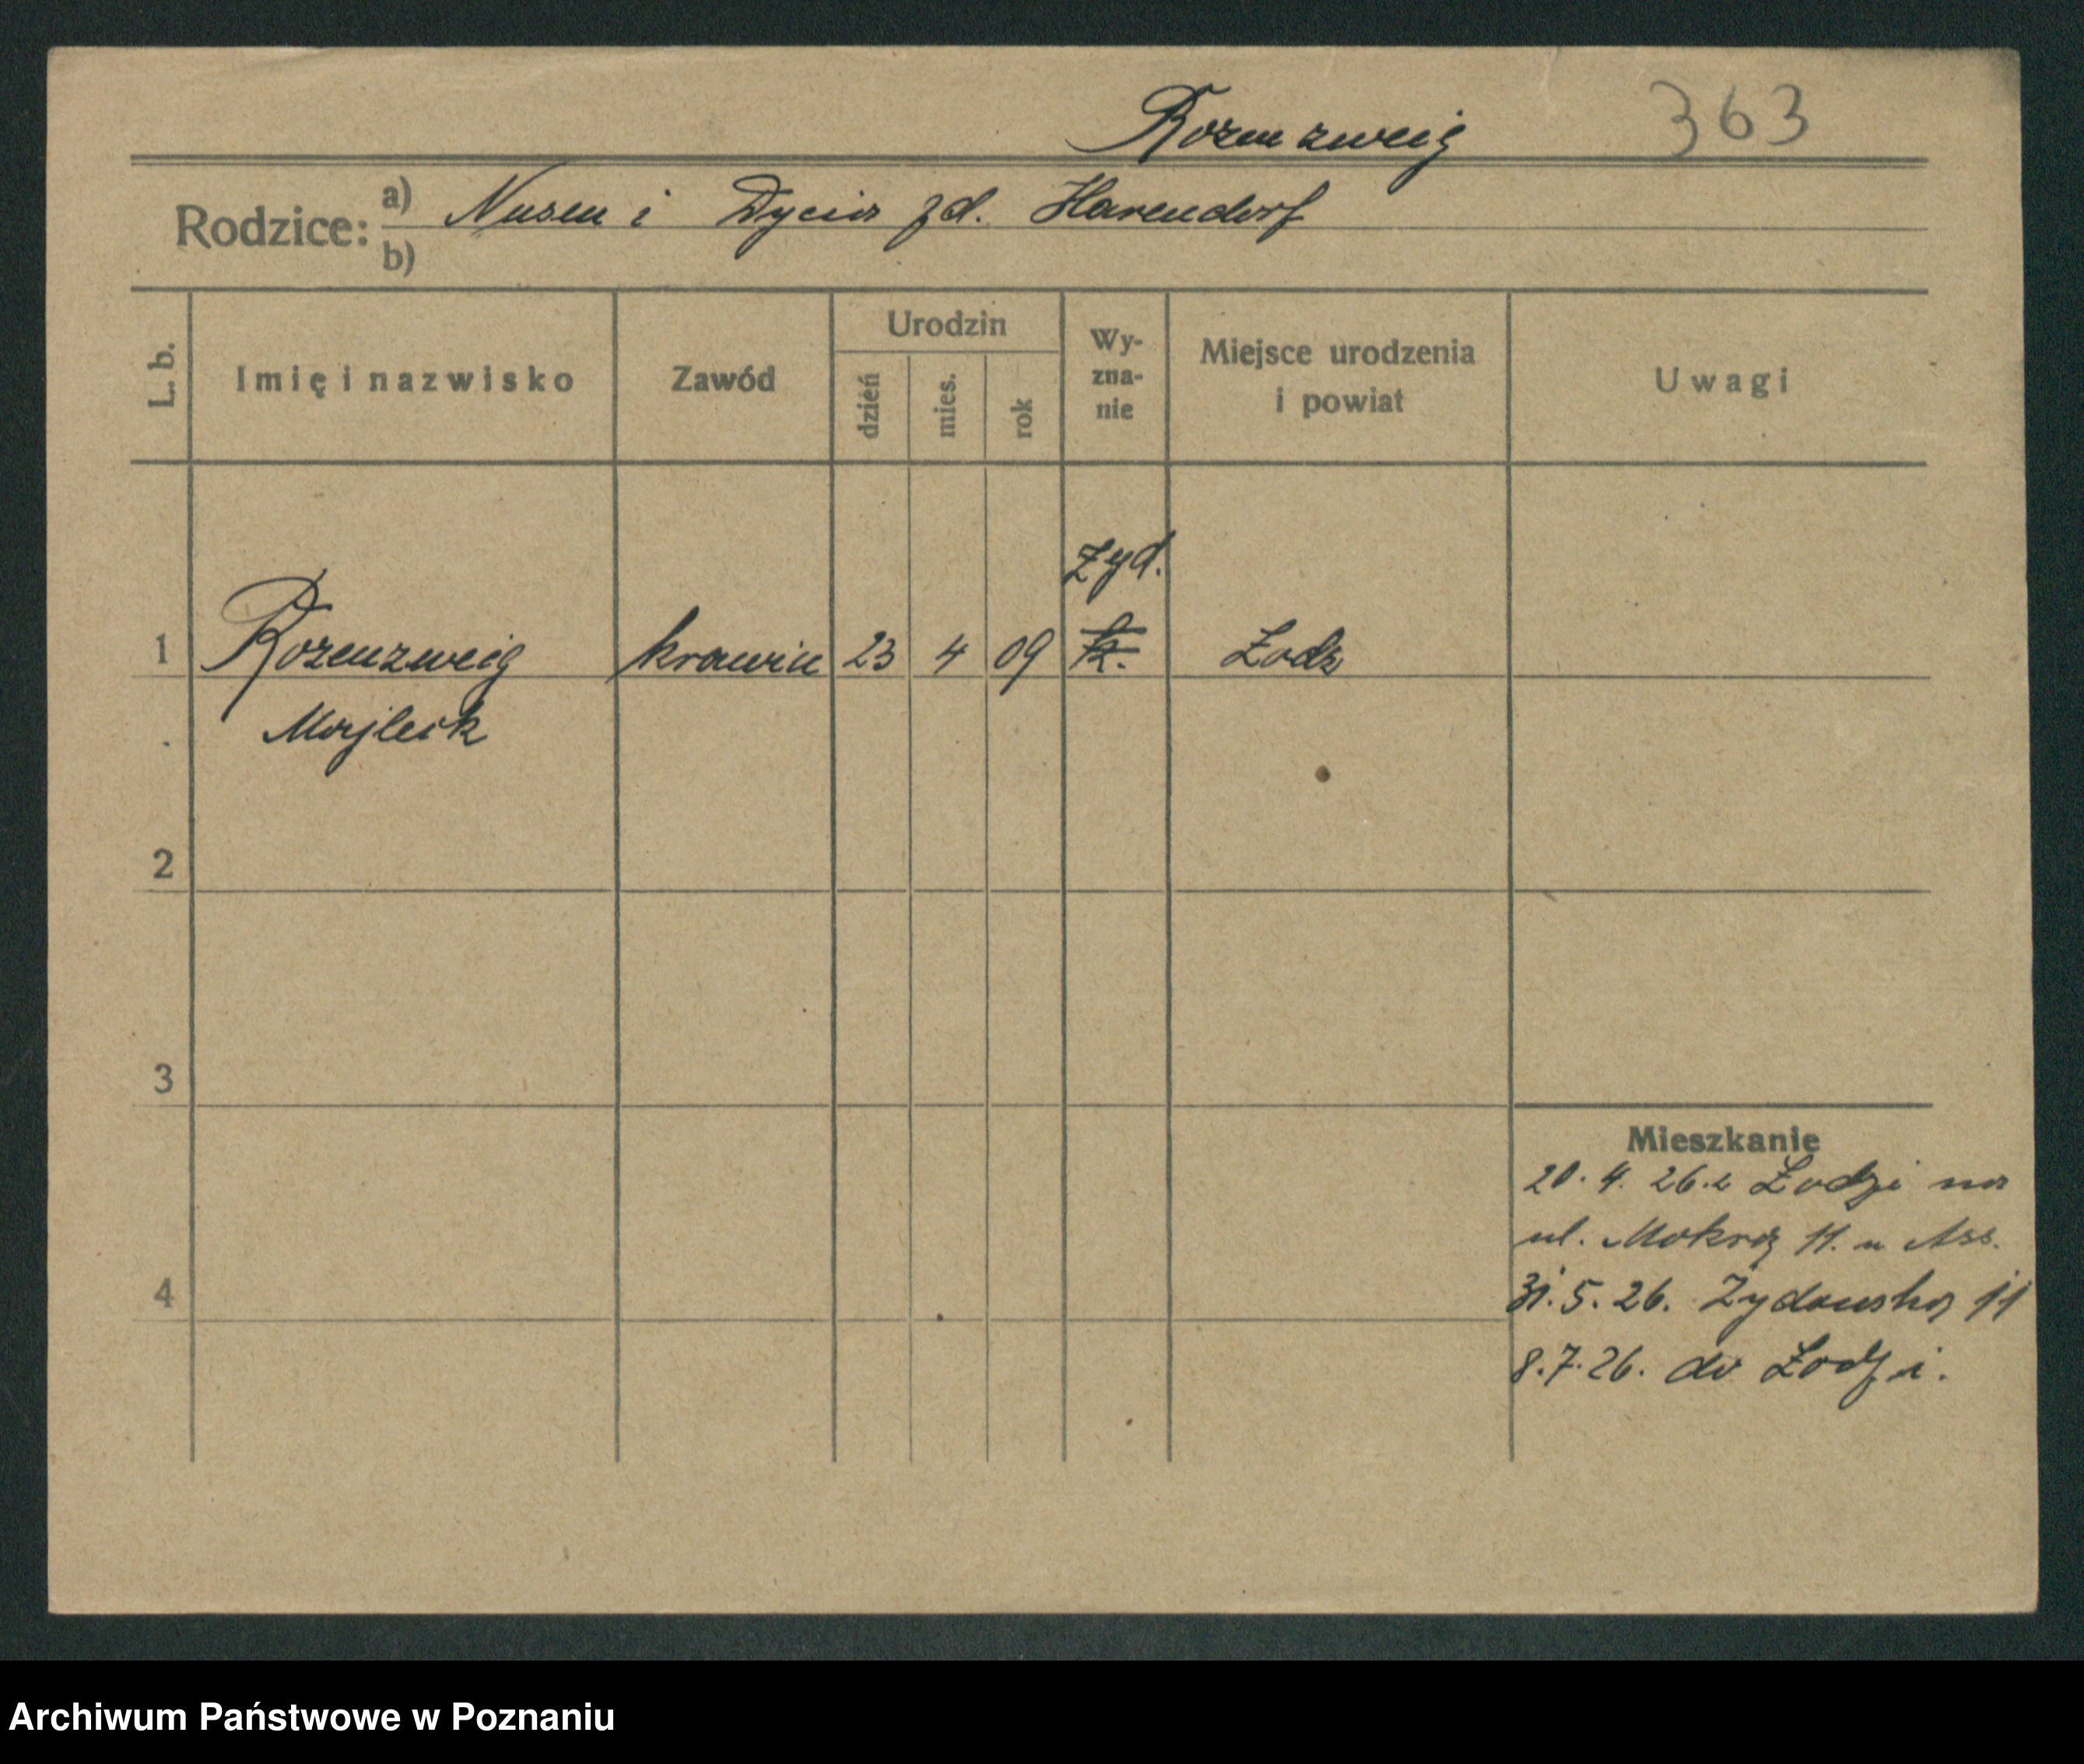 Rozenzweig 363
Rodzice: a) Nusen i Dycia zd. Harendorf
b)
L. b.
Imię i nazwisko
Zawód
Urodzin
dzień
mies.
rok
Wy-
zna-
nie
Miejsce urodzenia
i powiat
Uwagi
żyd.
1 Rozenzweig krawiec 23 4 09 k. Łodz
Majleik
2
3
4
Mieszkanie
20. 4. 26. z Łodzi na
ul. Mokrą 11. u Ass.
31. 5. 26. Żydowska 11
8. 7. 26. do Łodzi.
Archiwum Państwowe w Poznaniu